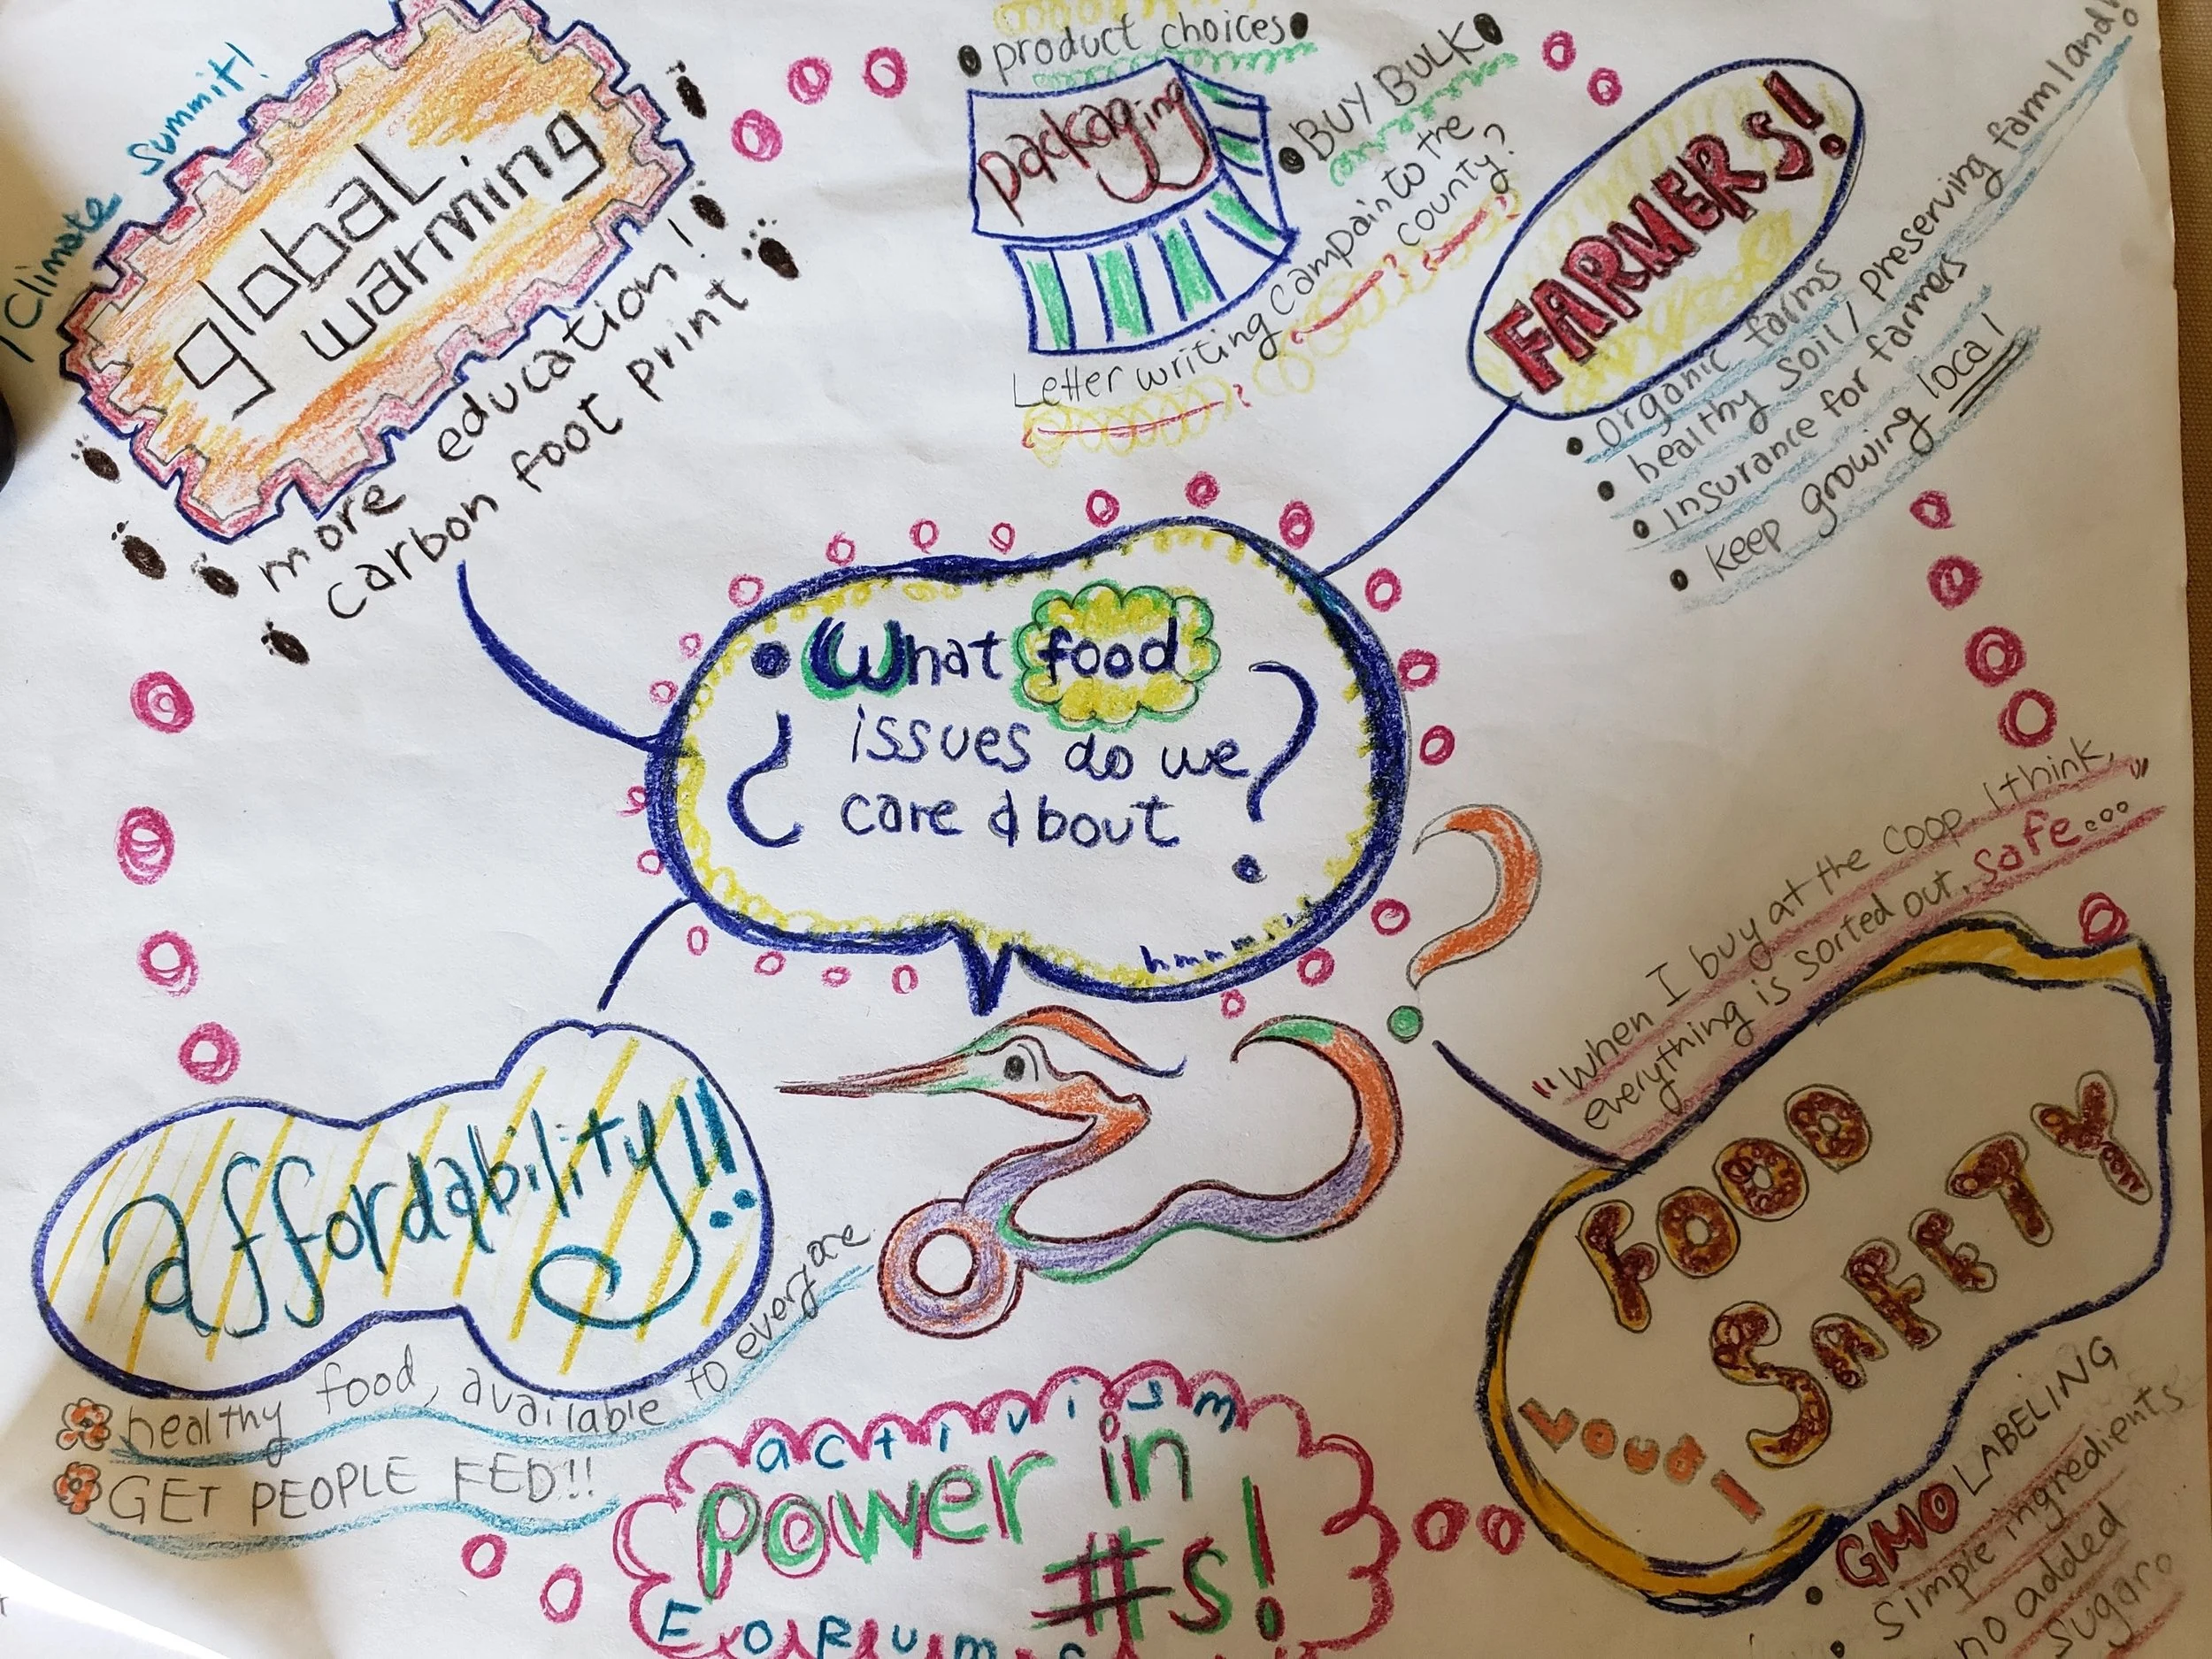 Climate Summit!
global
warming
more education!
carbon foot print
product choices
packaging
BUY BULK
Letter writing campain to the
county?
FARMERS!
organic farms
healthy soil / preserving farmland!
insurance for farmers
keep growing local
What food
issues do we
care about
?
hmmm
affordability!!
healthy food, available to everyone
GET PEOPLE FED!!
activism
power in
#s!
Forums
"When I buy at the coop, I think,
everything is sorted out, safe..."
FOOD
SAFETY
GMO LABELING
simple ingredients
no added
sugar